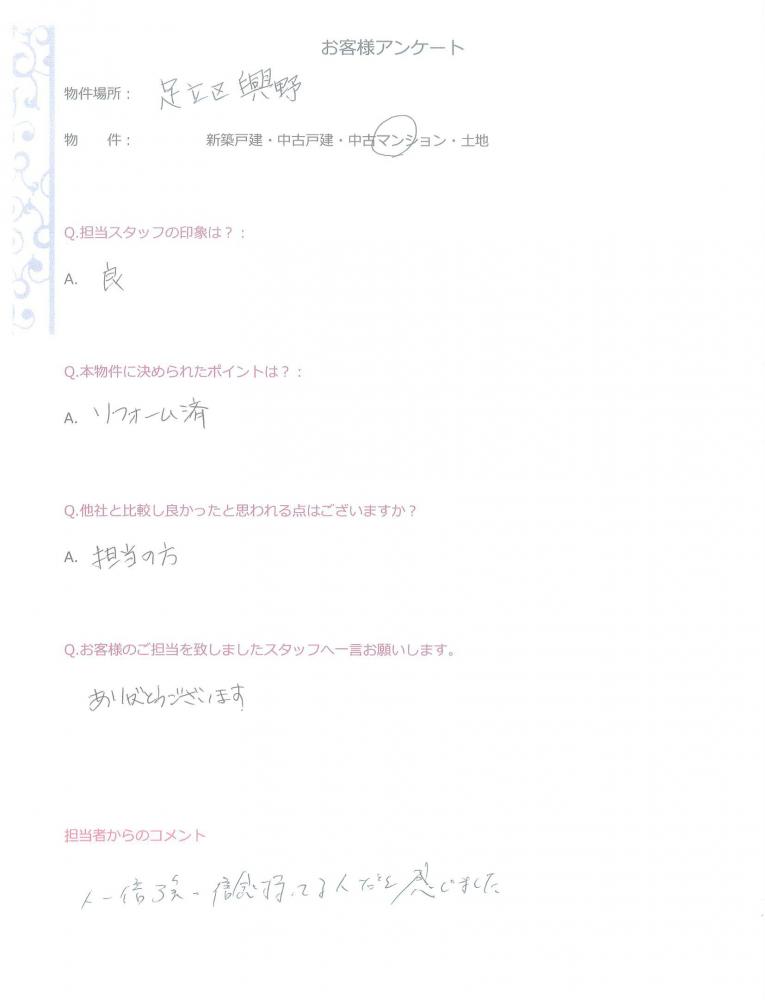 お客様アンケート
物件場所： 足立区 興野
物　件： 新築戸建・中古戸建・中古マンション・土地
Q.担当スタッフの印象は？：
A. 良
Q.本物件に決められたポイントは？：
A. リフォーム済
Q.他社と比較し良かったと思われる点はございますか？
A. 担当の方
Q.お客様のご担当を致しましたスタッフへ一言お願いします。
ありがとうございます
担当者からのコメント
人一倍強い信念持ってる人だと感じました